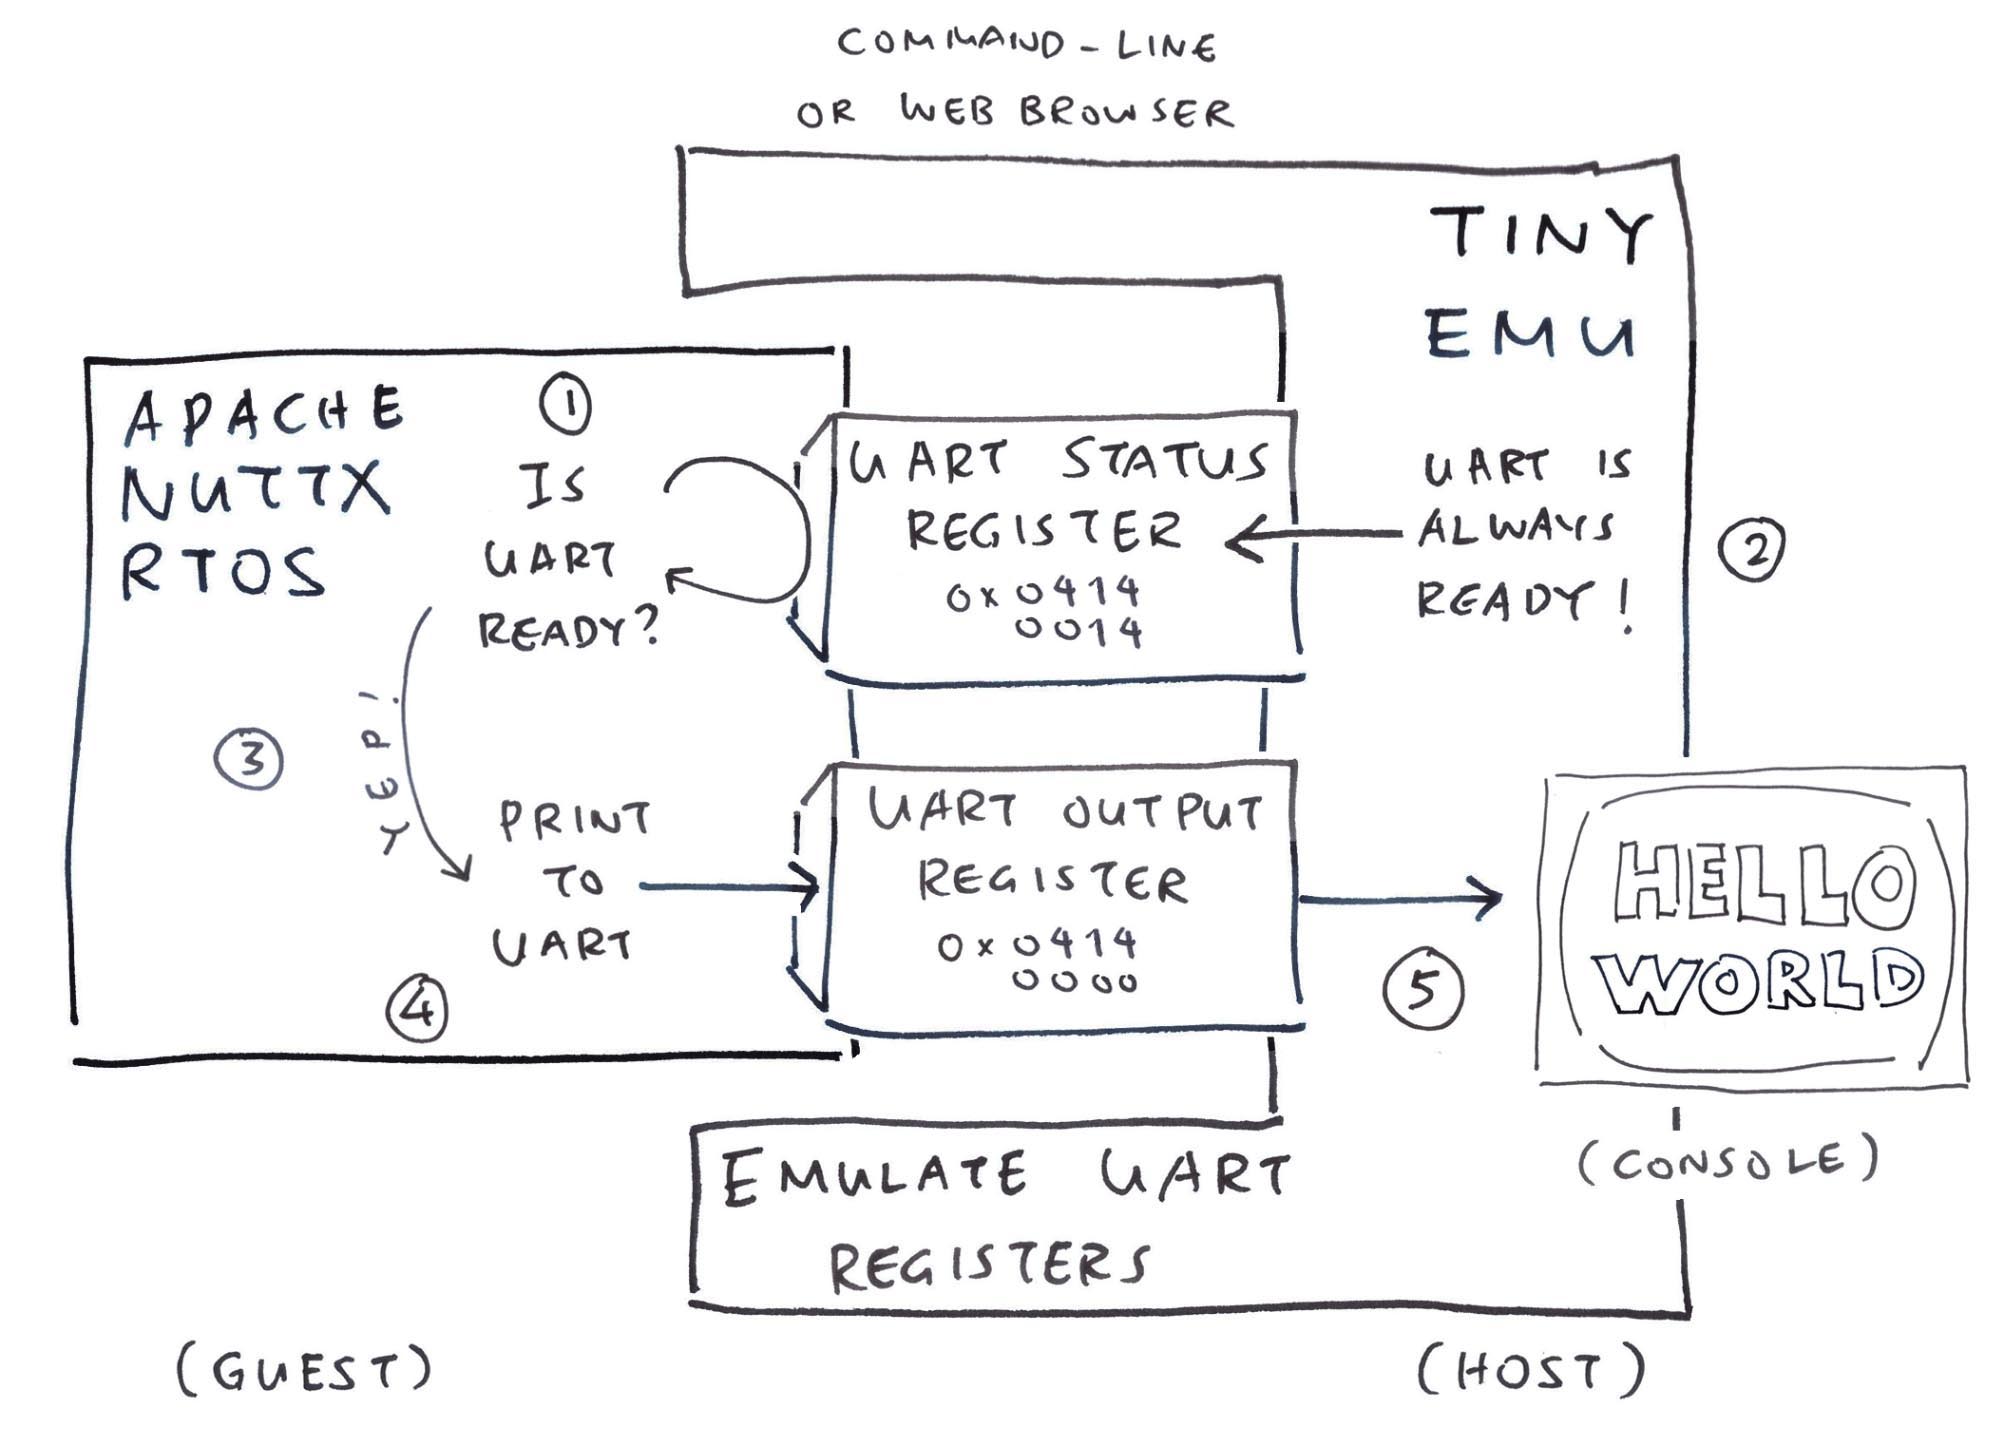 COMMAND-LINE
OR WEB BROWSER
TINY
EMU
APACHE
NUTTX
RTOS
1
IS
UART
READY?
UART STATUS
REGISTER
0x0414
0014
UART IS
ALWAYS
READY!
2
3
YEP!
PRINT
TO
UART
4
UART OUTPUT
REGISTER
0x0414
0000
5
HELLO
WORLD
(CONSOLE)
EMULATE UART
REGISTERS
(GUEST)
(HOST)